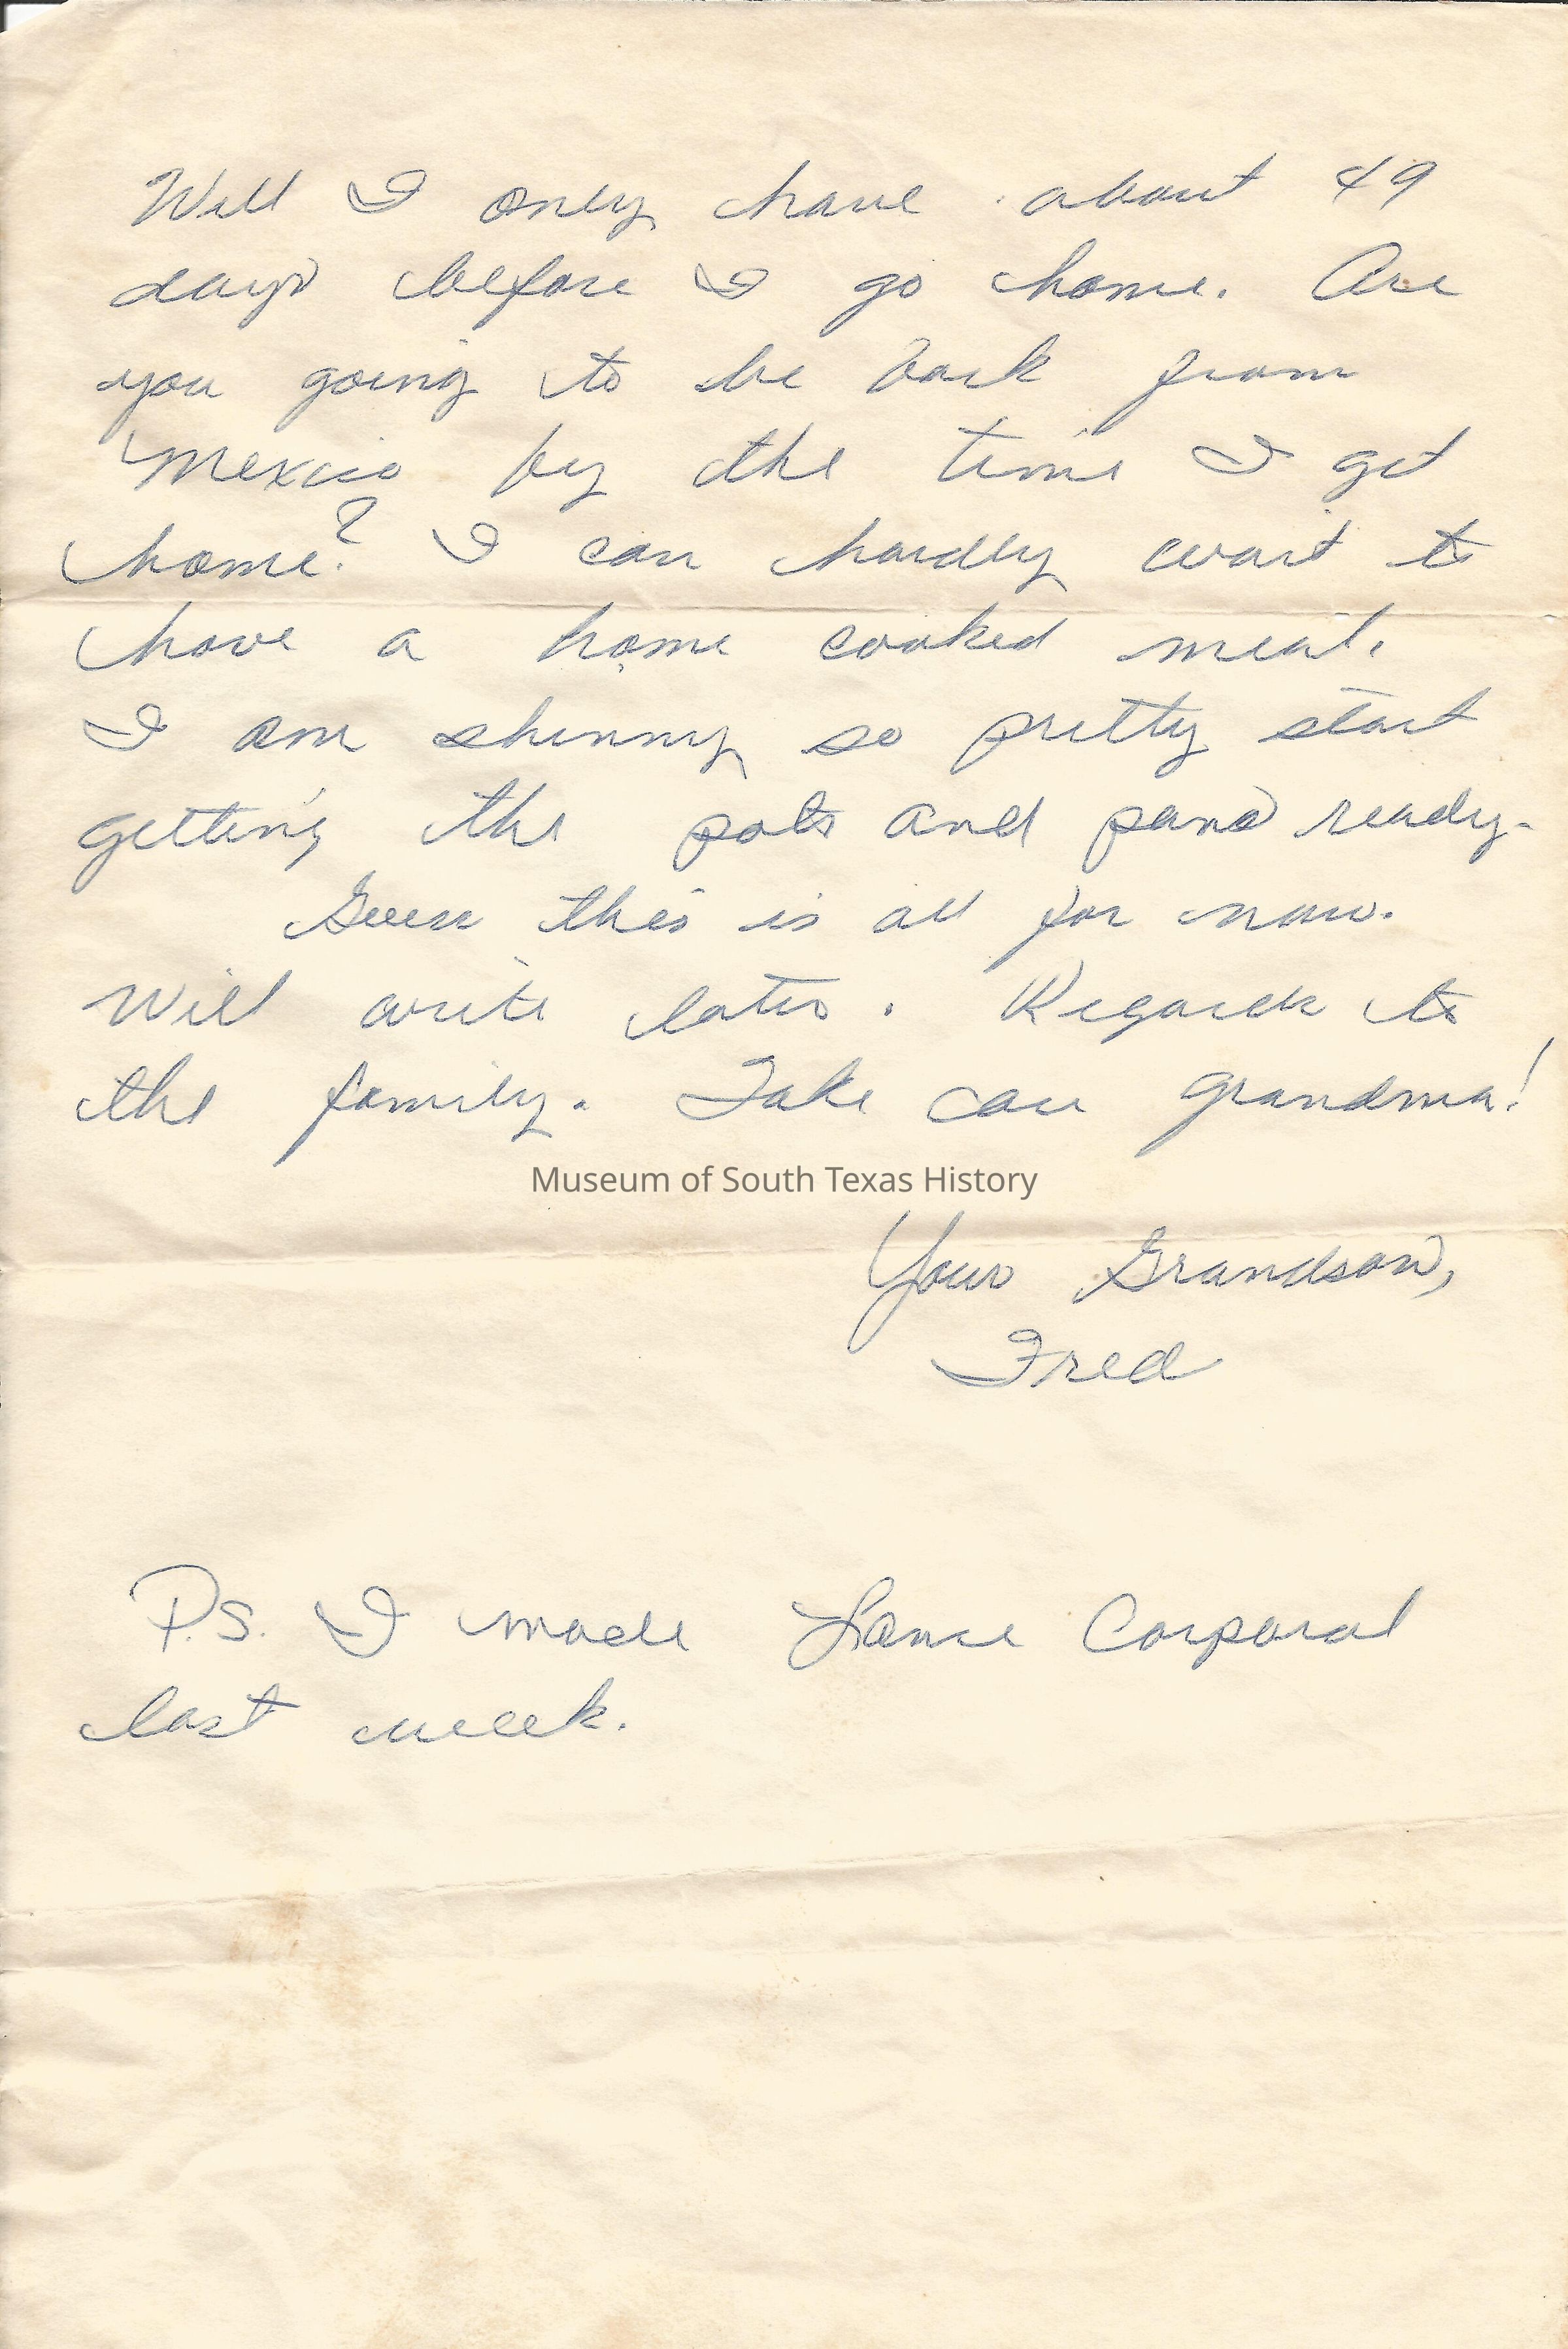 Well I only have about 49
days before I go home. Are
you going to be back from
Mexico by the time I get
home? I can hardly wait to
have a home cooked meal.
I am skinny so pretty start
getting the pots and pans ready.
Guess this is all for now.
Will write later. Regards to
the family. Take care grandma!
Museum of South Texas History
Your Grandson,
Fred
P.S. I made Lance Corporal
last week.